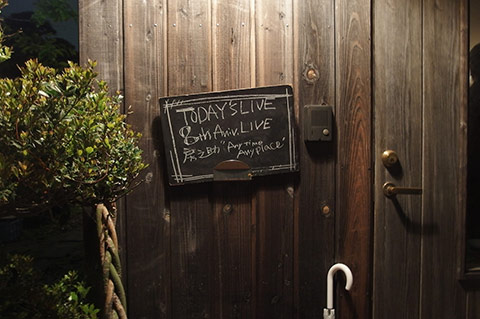 TODAY'S LIVE
8th Aniv. LIVE
"Any time
Any place"